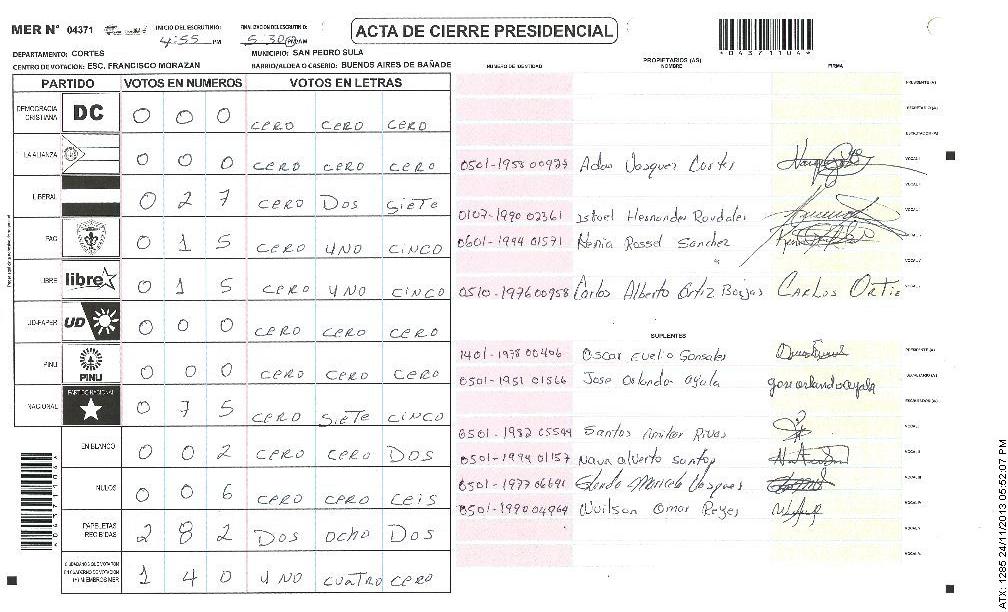 MER N° 04371 INICIO DEL ESCRUTINIO: 4:55 PM FINALIZACION DEL ESCRUTINIO: 5:30 PM ACTA DE CIERRE PRESIDENCIAL
*04371104*
DEPARTAMENTO: CORTES MUNICIPIO: SAN PEDRO SULA
CENTRO DE VOTACION: ESC. FRANCISCO MORAZAN BARRIO/ALDEA O CASERIO: BUENOS AIRES DE BAÑADE
PARTIDO VOTOS EN NUMEROS VOTOS EN LETRAS
DEMOCRACIA CRISTIANA DC 0 0 0 CERO CERO CERO
LA ALIANZA 0 0 0 CERO CERO CERO
LIBERAL 0 2 7 CERO DOS SIETE
PAC 0 1 5 CERO UNO CINCO
LIBRE libre 0 1 5 CERO UNO CINCO
UD-FAPER UD 0 0 0 CERO CERO CERO
PINU PINU 0 0 0 CERO CERO CERO
NACIONAL PARTIDO NACIONAL 0 7 5 CERO SIETE CINCO
EN BLANCO 0 0 2 CERO CERO DOS
NULOS 0 0 6 CERO CERO CEIS
PAPELETAS RECIBIDAS 2 8 2 DOS OCHO DOS
CIUDADANOS QUE VOTARON EN CUADERNO DE VOTACION (+) MIEMBROS MER 1 4 0 UNO CUATRO CERO
PROPIETARIOS (AS)
NUMERO DE IDENTIDAD NOMBRE FIRMA
PRESIDENTE (A)
SECRETARIO (A)
ESCRUTADOR (A)
Adan Vasquez Cortes VOCAL I
0107-1990 02361
0601-1994 01571 Kenia Rossel Sanchez
0510-1976 00958 Carlos Alberto Ortiz CARLOS ORTIZ
SUPLENTES
1401-1978 00406 Oscar PRESIDENTE (A)
0501-1951 01566 Jose Orlando Ayala SECRETARIO (A)
ESCRUTADOR (A)
Santos Rivas
0501-1994 01157
Vasquez
Wilson Omar Reyes
ATX: 1285 24/11/2013 05:52:07 PM